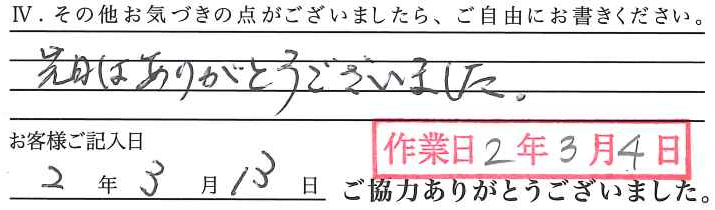 Ⅳ．その他お気づきの点がございましたら、ご自由にお書きください。
先日はありがとうございました。
お客様ご記入日
作業日2年3月4日
2年3月13日
ご協力ありがとうございました。